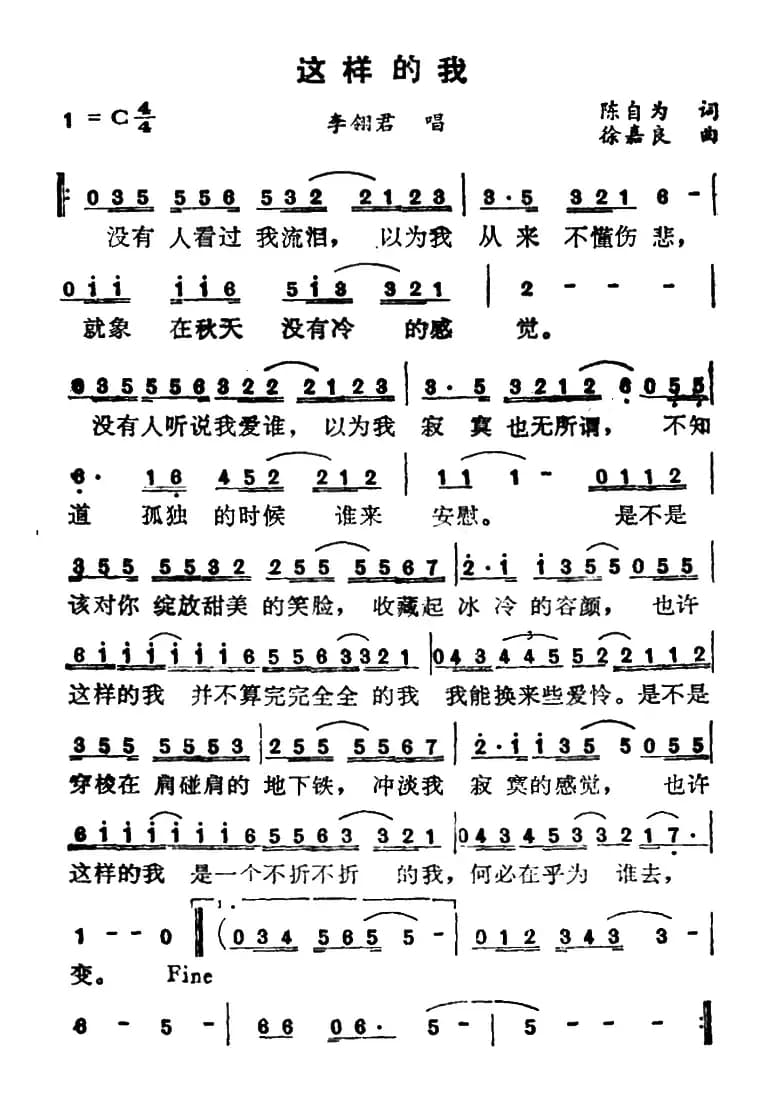 这样的我
1 = C 4/4 李翎君 唱 陈自为 词
徐嘉良 曲
035 556 532 2123 | 3·5 321 6 -
没有 人看过 我流泪， 以为我 从 来 不懂伤 悲，
0ii ii6 5i3 321 | 2 - - -
就象 在秋天 没有冷 的感 觉。
035556322 2123 | 3·5 3212 6 055
没有人听说我爱谁， 以为我 寂 寞也无所谓， 不知
6· 16 452 212 | 11 1- 0112
道 孤独 的时候 谁来 安慰。 是不是
355 5532 255 5567 | 2·i i355055
该对你 绽放甜美 的笑脸， 收藏起 冰 冷的容颜， 也许
6iiiiii65563321 | 0434455522112
这样的我 并不算完完全全 的我 我能换来些爱怜。是不是
355 5553 | 255 5567 | 2·ii35 5 055
穿梭在 肩碰肩的 地下铁， 冲淡我 寂 寞的感觉， 也许
6iiiiii65563 321 | 0434533217·
这样的我 是一个不折不折 的我，何必在乎为 谁去，
1 - - 0 (034 565 5- | 012 343 3-
1.
变。 Fine
6 - 5 - | 66 06· 5 - | 5 - - -